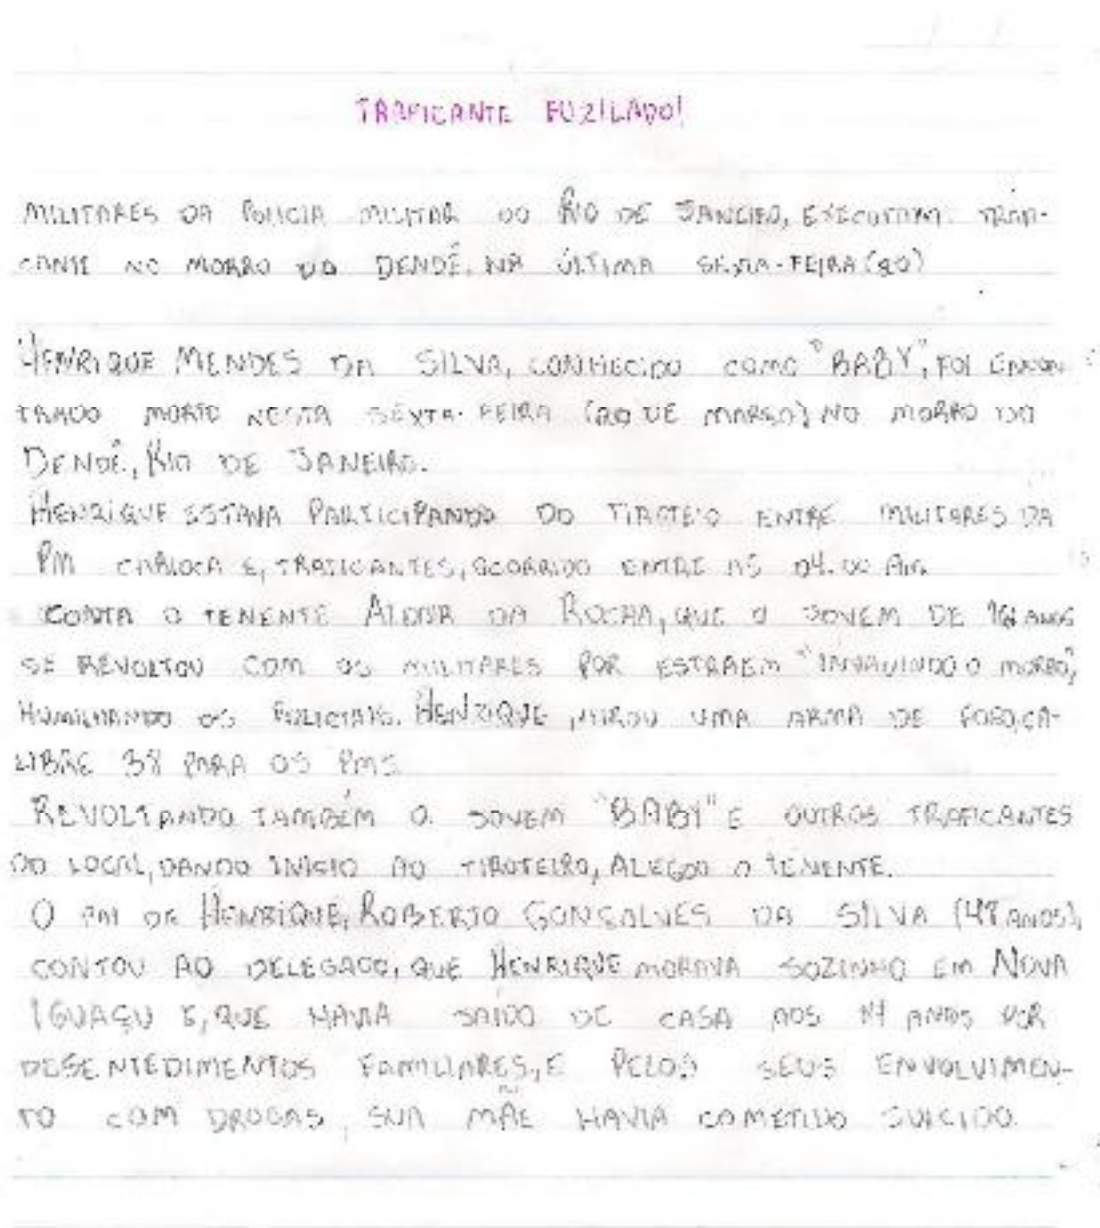 TRAFICANTE FUZILADO!
MILITARES DA POLICIA MILITAR DO RIO DE JANEIRO, EXECUTAM TRAFI-
CANTE NO MORRO DO DENDÊ, NA ÚLTIMA SEXTA-FEIRA (20)
HENRIQUE MENDES DA SILVA, CONHECIDO COMO "BABY", FOI ENCON
TRADO MORTO NESTA SEXTA-FEIRA (20 DE MARÇO) NO MORRO DO
DENDÊ, RIO DE JANEIRO.
HENRIQUE ESTAVA PARTICIPANDO DO TIROTEIO ENTRE MILITARES DA
PM CARIOCA E, TRAFICANTES, OCORRIDO ENTRE AS 04:00 AM.
CONTA O TENENTE DA ROCHA, QUE O JOVEM DE ANOS
SE REVOLTOU COM OS MILITARES POR ESTRAEM "INVADINDO O MORRO",
HUMILHANDO OS POLICIAIS. HENRIQUE, MIROU UMA ARMA DE FOGO, CA-
LIBRE 38 PARA OS PMS.
REVOLTANDO TAMBÉM O JOVEM "BABY" E OUTROS TRAFICANTES
DO LOCAL, DANDO INÍCIO AO TIROTEIRO, ALEGOU O TENENTE.
O PAI DE HENRIQUE, ROBERTO GONSALVES DA SILVA (47 ANOS),
CONTOU AO DELEGADO, QUE HENRIQUE MORAVA SOZINHO EM NOVA
IGUAÇU E, QUE HAVIA SAÍDO DE CASA AOS 14 ANOS POR
DESENTEDIMENTOS FAMILIARES, E PELOS SEUS ENVOLVIMEN-
TO COM DROGAS, SUA MÃE HAVIA COMETIDO SUICIDO.